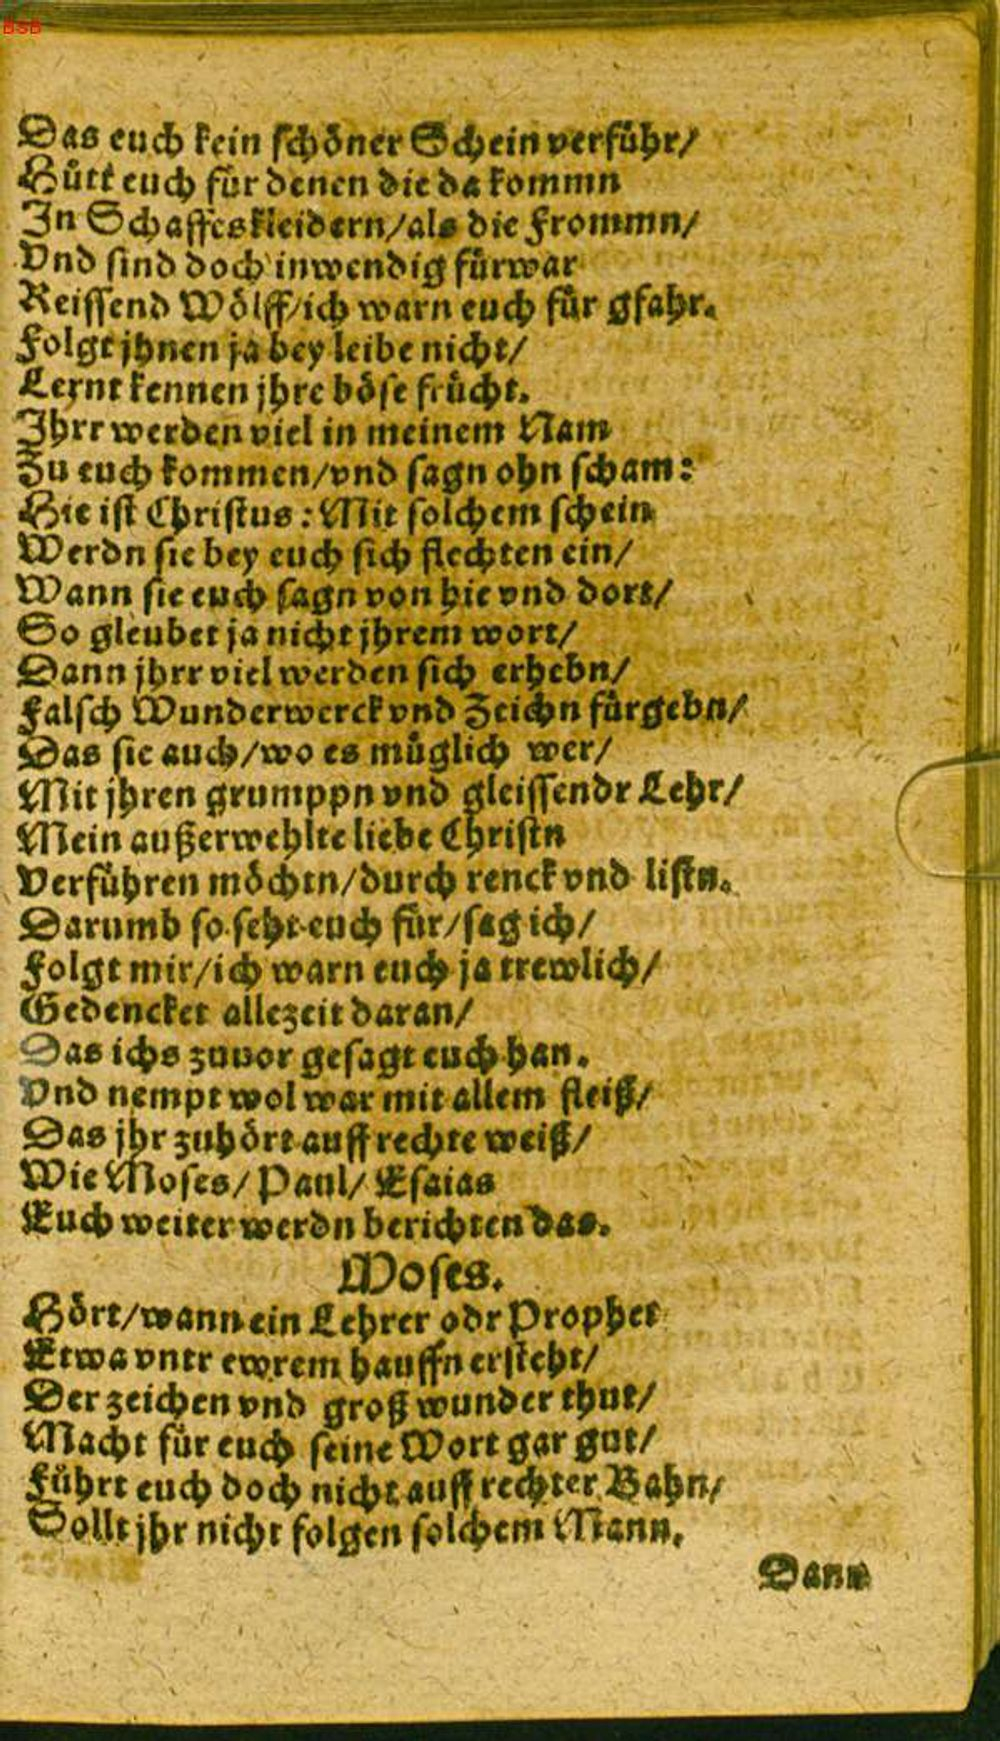 BSB
Das euch kein schöner Schein verführ/
Hütt euch für denen die da kommn
In Schaffeskleidern/als die frommn/
Vnd sind doch inwendig fürwar
Reissend Wölff/ich warn euch für gfahr.
Folgt jhnen ja bey leibe nicht/
Lernt kennen jhre böse frücht.
Ihrr werden viel in meinem Nam
Zu euch kommen/vnd sagn ohn scham:
Hie ist Christus: Mit solchem schein
Werdn sie bey euch sich flechten ein/
Wann sie euch sagn von hie vnd dort/
So gleubet ja nicht jhrem wort/
Dann jhrr viel werden sich erhebn/
Falsch Wunderwerck vnd Zeichn fürgebn/
Das sie auch/wo es müglich wer/
Mit jhren grumppn vnd gleissendr Lehr/
Mein außerwehlte liebe Christn
Verführen möchtn/durch renck vnd listn.
Darumb so seht euch für/sag ich/
Folgt mir/ich warn euch ja trewlich/
Gedencket allezeit daran/
Das ichs zuuor gesagt euch han.
Vnd nempt wol war mit allem fleiß/
Das jhr zuhört auff rechte weiß/
Wie Moses/ Paul/ Esaias
Euch weiter werdn berichten das.
Moses.
Hört/wann ein Lehrer odr Prophet
Etwa vntr ewrem hauffn ersteht/
Der zeichen vnd groß wunder thut/
Macht für euch seine Wort gar gut/
Führt euch doch nicht auff rechter Bahn/
Sollt jhr nicht folgen solchem Mann.
Dann